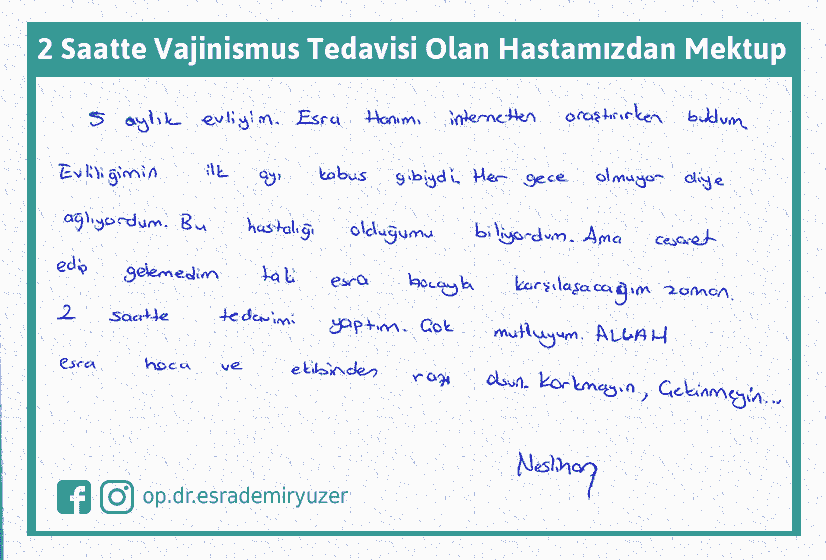 2 Saatte Vajinismus Tedavisi Olan Hastamızdan Mektup
5 aylık evliyim. Esra Hanımı internetten araştırırken buldum
Evliliğimin ilk ayı kabus gibiydi. Her gece olmuyor diye
ağlıyordum. Bu hastalığı olduğumu biliyordum. Ama cesaret
edip gelemedim taki esra hocayla karşılaşacağım zaman.
2 saatte tedavimi yaptım. Çok mutluyum. ALLAH
esra hoca ve ekibinden razı olsun. Korkmayın, Çekinmeyin...
Neslihan
op.dr.esrademiryuzer